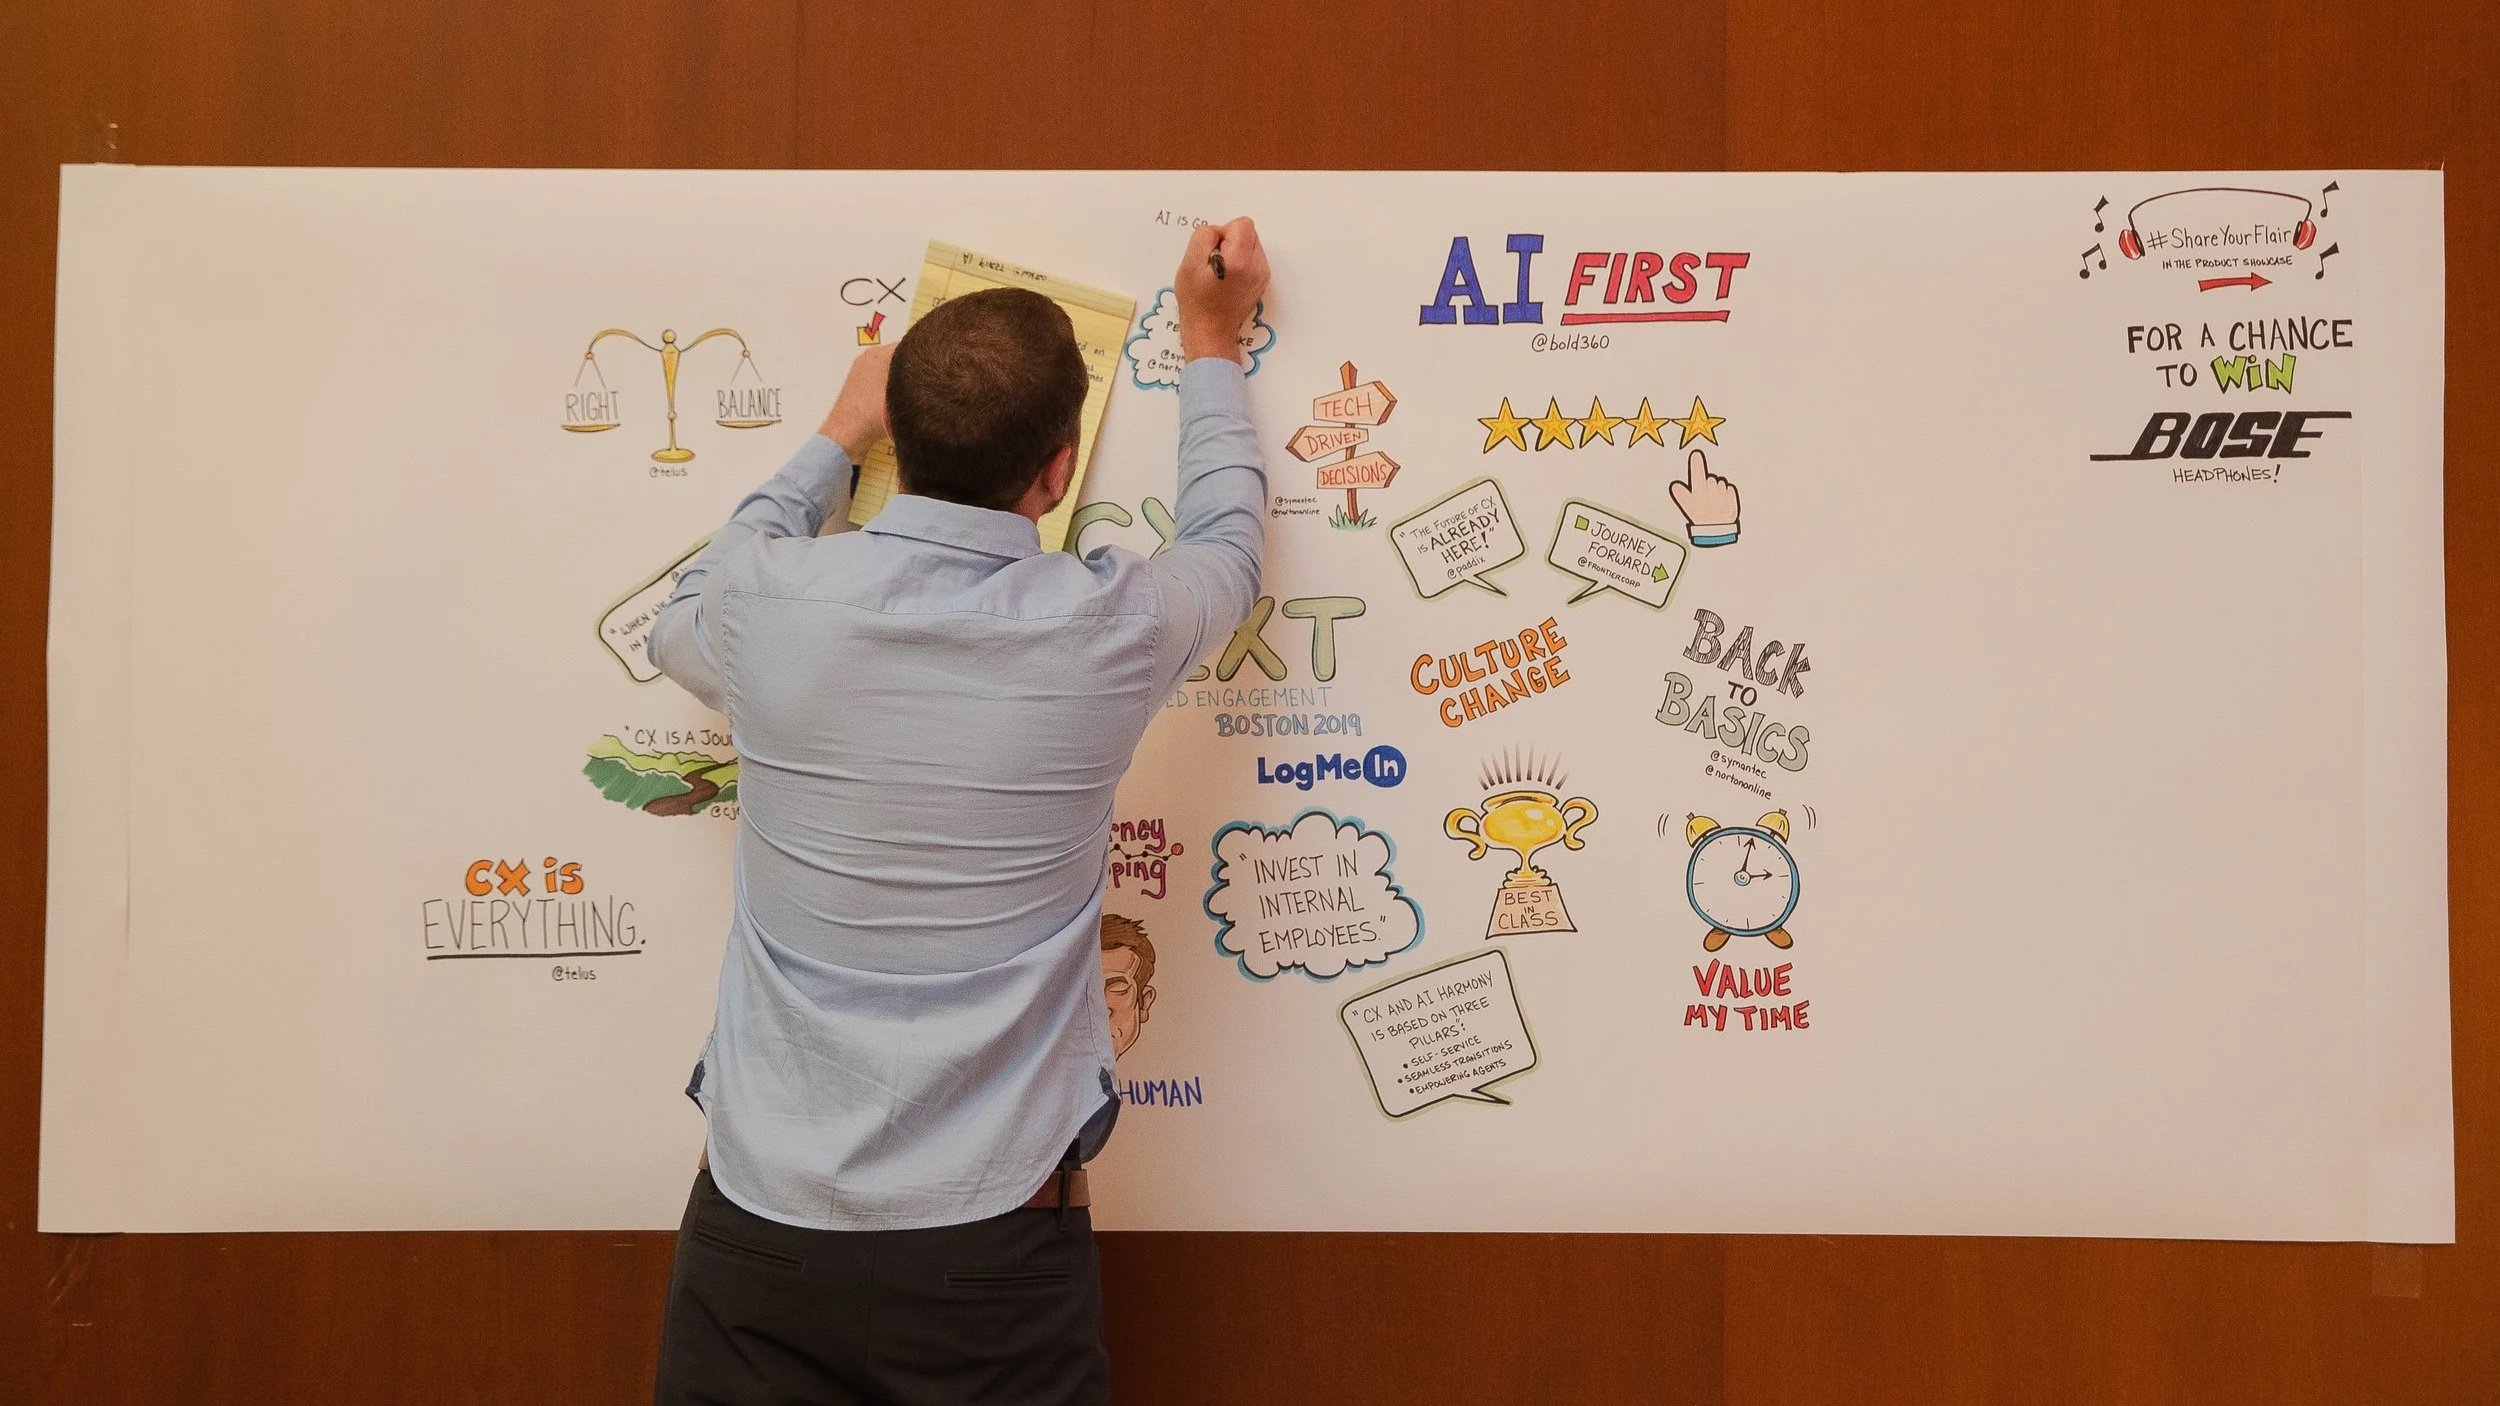 AI IS
CX
RIGHT
BALANCE
@telus
AI FIRST
@bold360
TECH
DRIVEN
DECISIONS
@symantec
@nortononline
"THE FUTURE OF CX
IS ALREADY
HERE!"
@paddix
JOURNEY
FORWARD
@FRONTIERCORP
#ShareYourFlair
IN THE PRODUCT SHOWCASE
FOR A CHANCE
TO WIN
BOSE
HEADPHONES!
"WHEN
IN A
CX
XT
ED ENGAGEMENT
BOSTON 2019
LogMeIn
CULTURE
CHANGE
BACK
TO
BASICS
@symantec
@nortononline
"CX IS A JOU
CX is
EVERYTHING.
@telus
rney
ping
"INVEST IN
INTERNAL
EMPLOYEES."
BEST
IN
CLASS
VALUE
MY TIME
"CX AND AI HARMONY
IS BASED ON THREE
PILLARS":
• SELF-SERVICE
• SEAMLESS TRANSITIONS
• EMPOWERING AGENTS
HUMAN